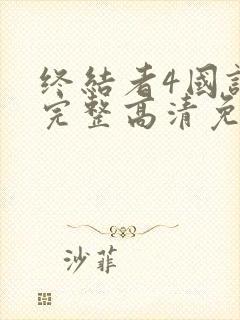 终结者4国
完整高清免
沙菲